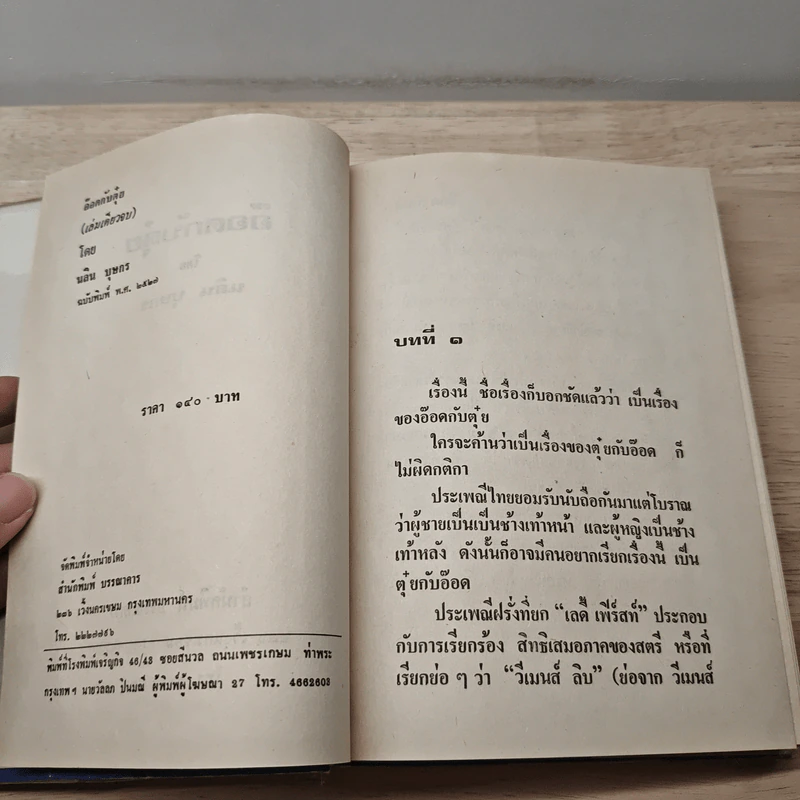 อ๊อดกับตุ๋ย
(เล่มเดียวจบ)
โดย
นลิน บุษกร
ฉบับพิมพ์ พ.ศ. ๒๕๒๗
ราคา ๑๔๐ บาท
จัดพิมพ์จำหน่ายโดย
สำนักพิมพ์ บรรณาคาร
๒๓๖ เวิ้งนครเขษม กรุงเทพมหานคร
โทร. ๒๒๒๗๗๙๖
พิมพ์ที่โรงพิมพ์เจริญกิจ 46/48 ซอยสีนวล ถนนเพชรเกษม ท่าพระ
กรุงเทพฯ นายวัลลภ ปิ่นมณี ผู้พิมพ์ผู้โฆษณา 27 โทร. 4662603
บทที่ ๑
เรื่องนี้ ชื่อเรื่องก็บอกชัดแล้วว่า เป็นเรื่อง
ของอ๊อดกับตุ๋ย
ใครจะค้านว่าเป็นเรื่องของตุ๋ยกับอ๊อด ก็
ไม่ผิดกติกา
ประเพณีไทยยอมรับนับถือกันมาแต่โบราณ
ว่าผู้ชายเป็นเป็นช้างเท้าหน้า และผู้หญิงเป็นช้าง
เท้าหลัง ดังนั้นก็อาจมีคนอยากเรียกเรื่องนี้ เป็น
ตุ๋ยกับอ๊อด
ประเพณีฝรั่งที่ยก “เลดี้ เฟิร์สท์” ประกอบ
กับการเรียกร้อง สิทธิเสมอภาคของสตรี หรือที่
เรียกย่อ ๆ ว่า “วีเมนส์ ลิบ” (ย่อจาก วีเมนส์